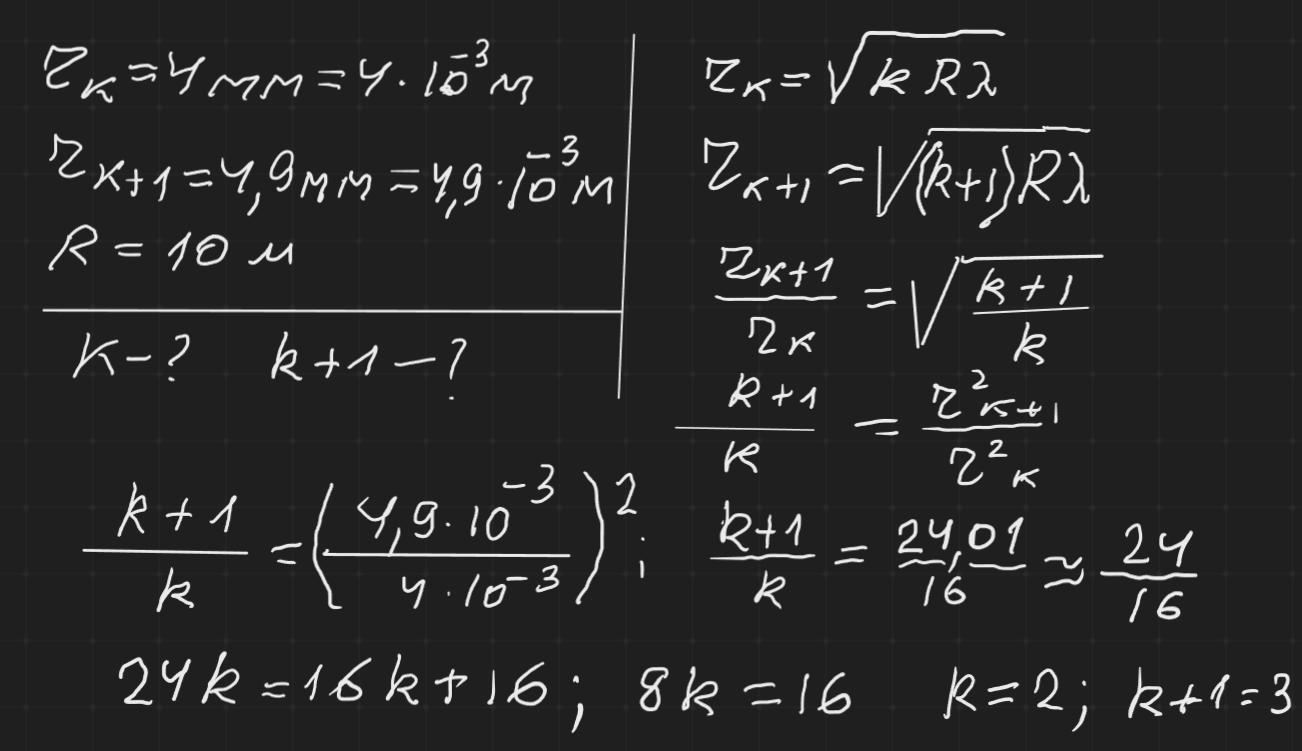 r_к = 4 мм = 4 · 10^-3 м
r_к+1 = 4,9 мм = 4,9 · 10^-3 м
R = 10 м
К - ? k+1 - ?
r_к = √(k R λ)
r_к+1 = √((k+1) R λ)
r_к+1 / r_к = √((k+1) / k)
(k+1) / k = r²_к+1 / r²_к
(k+1) / k = ((4,9 · 10^-3) / (4 · 10^-3))² ; (k+1) / k = 24,01 / 16 ≈ 24 / 16
24k = 16k + 16 ; 8k = 16 k = 2 ; k+1 = 3